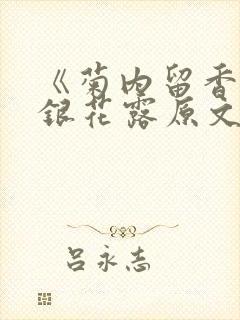 《菊内留香
銀花露原文
吕永志